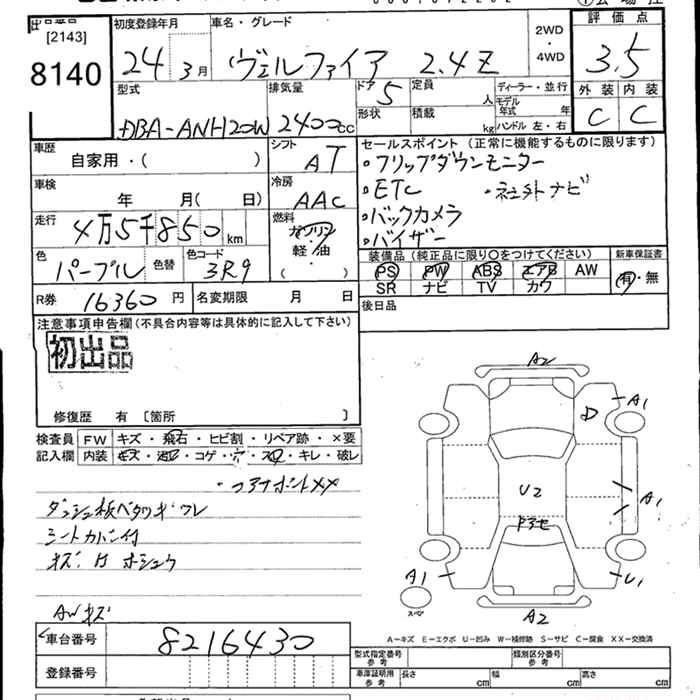 出品番号
[2143]
8140
初度登録年月
24年 3月
車名・グレード
ヴェルファイア 2.4Z
2WD
・
4WD
評価点
3.5
型式
DBA-ANH20W
排気量
2400cc
ドア
5
形状
定員
人
積載
kg
ディーラー・並行
モデル年式 年
ハンドル 左・右
外装 内装
C C
車歴
自家用・( )
シフト
AT
セールスポイント(正常に機能するものに限ります)
・フリップダウンモニター
・ETC ・社外ナビ
・バックカメラ
・バイザー
車検
年 月( 日)
冷房
AAC
走行
4万5千850km
燃料
ガソリン
軽・油
( )
色
パープル
色替
色コード
3R9
装備品(純正品に限り○をつけてください)
新車保証書
PS PW ABS エアB AW
SR ナビ TV カワ
有・無
R券
16360円
名変期限 月 日
後日品
注意事項申告欄(不具合内容等は具体的に記入して下さい)
初出品
修復歴 有〔箇所 〕
検査員
記入欄
FW キズ・飛石・ヒビ割・リペア跡・×要
内装 キズ・コゲ・穴・キレ・破レ
シートカバー付
AWキズ
A2
A1
D
U2
A1
A1
U1
A2
スペア
A-キズ E-エクボ U-凹み W-補修跡 S-サビ C-腐食 XX-交換済
車台番号
8216430
登録番号
型式指定番号
参考
類別区分番号
参考
車庫証明用
参考
長さ cm
幅 cm
高さ cm